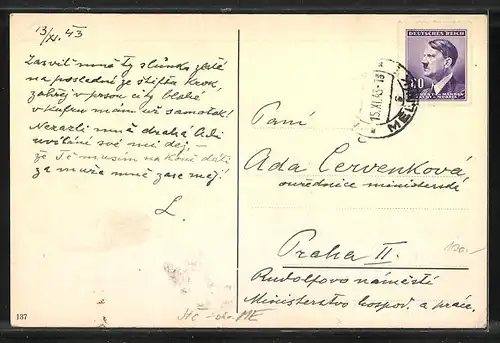 13/XI. 43
Zasviť mně ty slůnko zlaté
na poslední ze štífta krok,
zahřej v prsou city blahé
v kufru mám už samotok!
Nezazli mně drahá Adi
uvítání své mi dej, –
že Tě musím na koně dáti
za muže mně zase měj!
L.
DEUTSCHES REICH
60
15.XI.43-18
MĚL
Paní
Ada Červenková,
úřednice ministerstv.
Praha II.
Rudolfovo náměstí
Ministerstvo hospod. a práce.
100.-
137